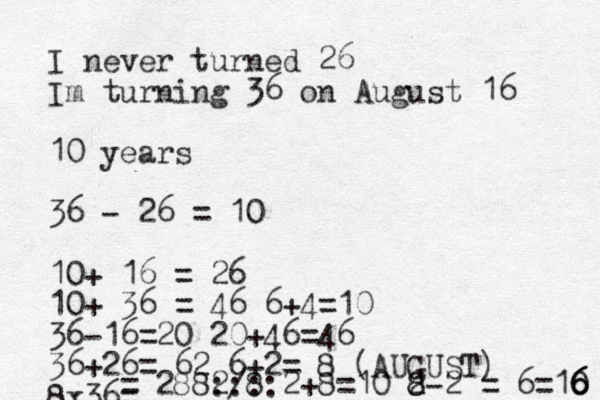 I never turned 26
Im turning 36 on August 16
10 years
36 - 26 = 10
10+ 16 = 26
10+ 36 = 46 6+4=10
36-16=20 20+46=46
36+26= 62 6+2= 8 (AUGUST)
8x36= 288 2+8=10 8-2 = 6=16